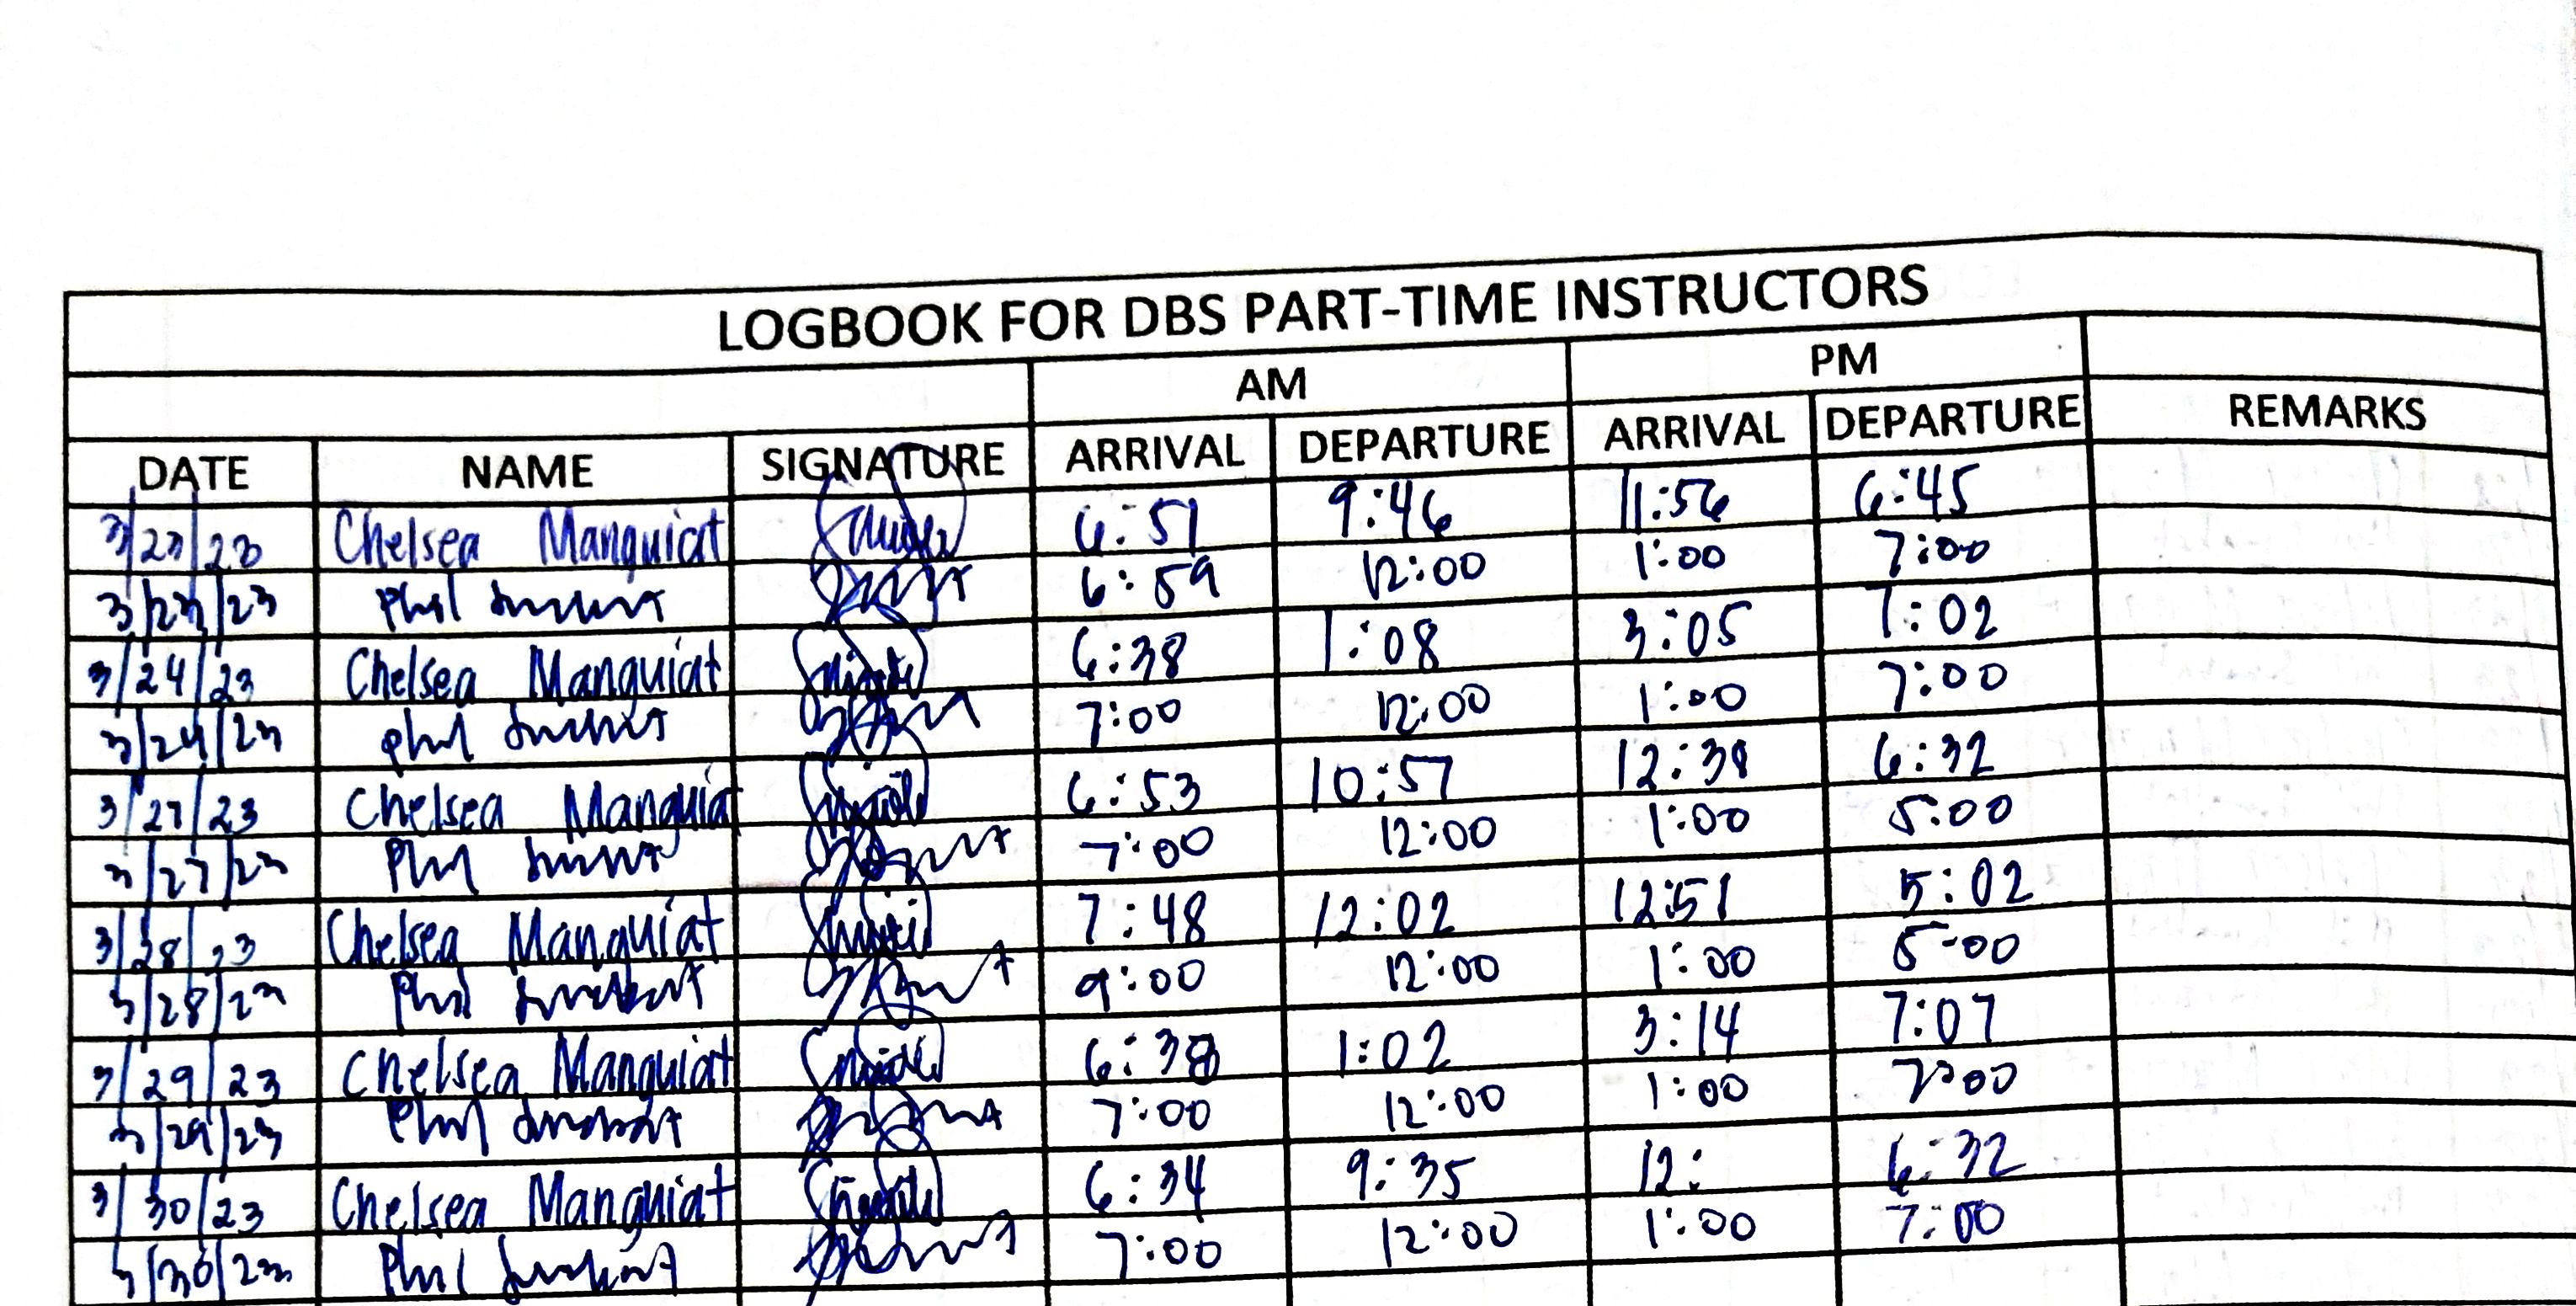 LOGBOOK FOR DBS PART-TIME INSTRUCTORS
AM PM
DATE NAME SIGNATURE ARRIVAL DEPARTURE ARRIVAL DEPARTURE REMARKS
3/23/23 Chelsea Manguiat 6:51 9:46 11:56 6:45
3/23/23 Phil 6:59 12:00 1:00 7:00
3/24/23 Chelsea Manguiat 6:38 1:08 3:05 7:02
3/24/23 Phil 7:00 12:00 1:00 7:00
3/27/23 Chelsea Manguia 6:53 10:57 12:38 6:32
3/27/23 Phil 7:00 12:00 1:00 5:00
3/28/23 Chelsea Manguiat 7:48 12:02 12:51 5:02
3/28/23 Phil 9:00 12:00 1:00 5:00
3/29/23 Chelsea Manguiat 6:38 1:02 3:14 7:07
3/29/23 Phil 7:00 12:00 1:00 7:00
3/30/23 Chelsea Manguiat 6:34 9:35 12: 6:32
3/30/23 Phil 7:00 12:00 1:00 7:00